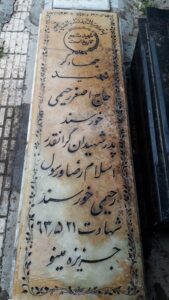 شهید
حاج اصغر رحیمی
خورسند
پدر شهیدان گرانقدر
اسلام رضا و رسول
رحیمی خورسند
شهادت ۶۳/۵/۲۱
جزیره مینو